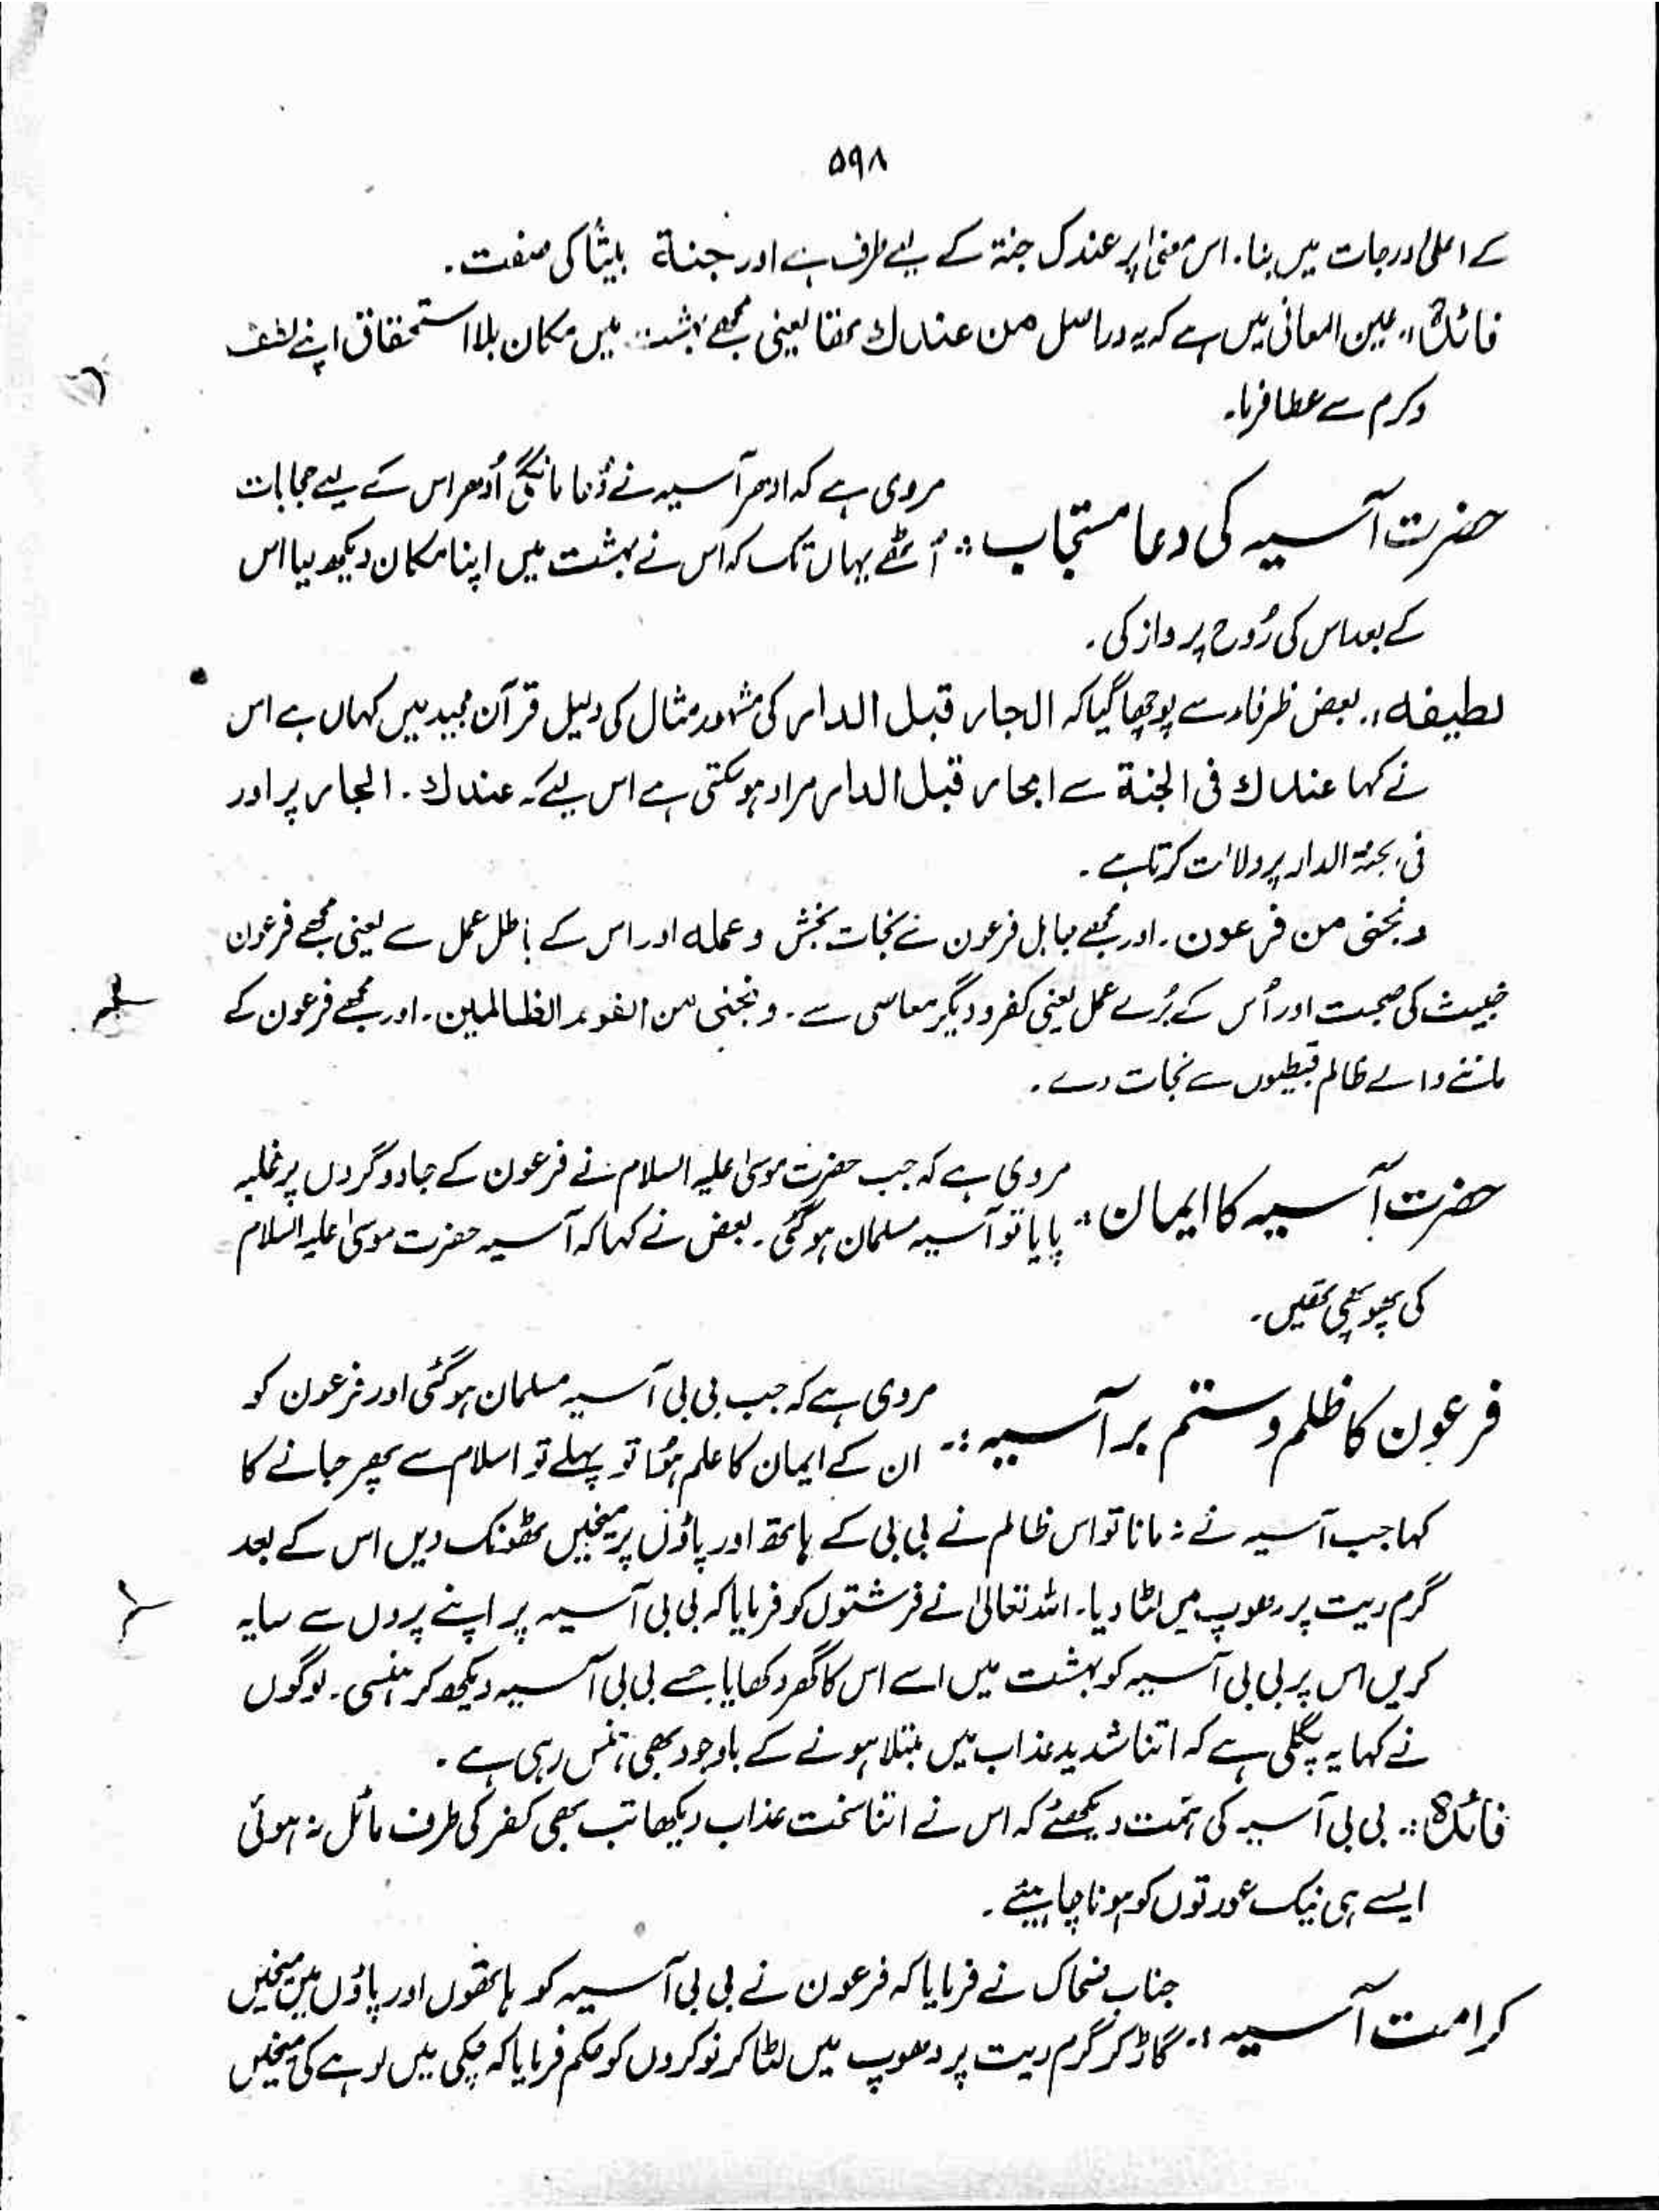 ۵۹۸
کے اعلیٰ درجات میں بنا۔ اس معنیٰ پر عندک جنۃ کے لیے ظرف ہے اور جنة بیتًا کی صفت۔
فائدہ:۔ عین المعانی میں ہے کہ یہ دراصل من عندك تھا یعنی مجھے بہشت میں مکان بلا استحقاق اپنے لطف
وکرم سے عطا فرما۔
حضرت آسیہ کی دعا مستجاب:۔ مروی ہے کہ ادھر آسیہ نے دُعا مانگی اُدھر اس کے لیے حجابات
اُٹھے یہاں تک کہ اس نے بہشت میں اپنا مکان دیکھ لیا اس
کے بعد اس کی رُوح پرواز کی۔
لطیفہ:۔ بعض ظرفاء سے پوچھا گیا کہ الجار قبل الدار کی مشہور مثال کی دلیل قرآن مجید میں کہاں ہے اس
نے کہا عندك فی الجنة سے الجار قبل الدار مراد ہو سکتی ہے اس لیے کہ عندك۔ الجار پر اور
فی الجنۃ الدار پر دلالت کرتا ہے۔
ونجنی من فرعون۔ اور مجھے جاہل فرعون سے نجات بخش وعملہ اور اس کے باطل عمل سے یعنی مجھے فرعون
خبیث کی صحبت اور اُس کے بُرے عمل یعنی کفر و دیگر معاصی سے۔ ونجنی من القوم الظالمین۔ اور مجھے فرعون کے
ماننے والے ظالم قبطیوں سے نجات دے۔
حضرت آسیہ کا ایمان:۔ مروی ہے کہ جب حضرت موسیٰ علیہ السلام نے فرعون کے جادوگروں پر غلبہ
پایا تو آسیہ مسلمان ہو گئی۔ بعض نے کہا کہ آسیہ حضرت موسیٰ علیہ السلام
کی پھوپھی تھیں۔
فرعون کا ظلم و ستم بر آسیہ:۔ مروی ہے کہ جب بی بی آسیہ مسلمان ہو گئی اور فرعون کو
ان کے ایمان کا علم ہُوا تو پہلے تو اسلام سے پھر جانے کا
کہا جب آسیہ نے نہ مانا تو اس ظالم نے بی بی کے ہاتھ اور پاؤں پر میخیں ٹھونک دیں اس کے بعد
گرم ریت پر دھوپ میں لٹا دیا۔ اللہ تعالیٰ نے فرشتوں کو فرمایا کہ بی بی آسیہ پر اپنے پروں سے سایہ
کریں اس پر بی بی آسیہ کو بہشت میں اسے اس کا گھر دکھایا جسے بی بی آسیہ دیکھ کر ہنسی۔ لوگوں
نے کہا یہ پگلی ہے کہ اتنا شدید عذاب میں مبتلا ہونے کے باوجود بھی ہنس رہی ہے۔
فائدہ:۔ بی بی آسیہ کی ہمت دیکھئے کہ اس نے اتنا سخت عذاب دیکھا تب بھی کفر کی طرف مائل نہ ہوئی
ایسے ہی نیک عورتوں کو ہونا چاہیئے۔
کرامت آسیہ:۔ جناب ضحاک نے فرمایا کہ فرعون نے بی بی آسیہ کو ہاتھوں اور پاؤں میں میخیں
گاڑ کر گرم ریت پر دھوپ میں لٹا کر نوکروں کو حکم فرمایا کہ چکی میں لوہے کی میخیں